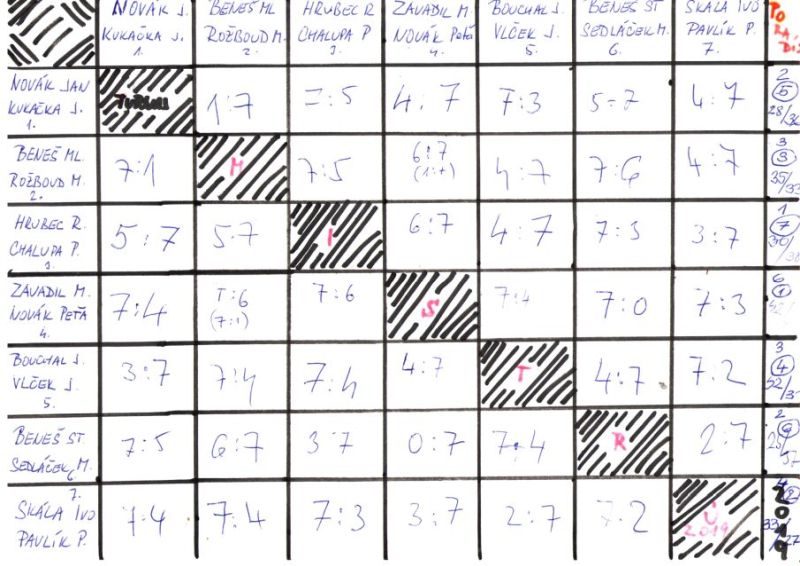 NOVÁK J. BENEŠ ML HRUBEC R ZÁVADIL M. BOUCHAL J. BENEŠ ST SKÁLA IVO
KUKAČKA J. ROŽBOUD M. CHALUPA P NOVÁK PEŤA VLČEK J. SEDLÁČEK M. PAVLÍK P.
1. 2. 3 4. 5. 6. 7.
PO
RA,
NOVÁK JAN
KUKAČKA J.
1.
1:7 7:5 4:7 7:3 5-7 4:7
2
5
BENEŠ ML.
ROŽBOUD M.
2.
7:1 M 7:5 6:7 4:7 7:6 4:7
(1:7)
3
3
HRUBEC R.
CHALUPA P.
3.
5:7 5.7 I 6:7 4:7 7:3 3:7
1
7
ZÁVADIL M.
NOVÁK PEŤA
4.
7:4 7:6 7:6 S 7:4 7:0 7:3
(7:1)
6
1
BOUCHAL J.
VLČEK J.
5.
3:7 7:4 7:4 4:7 T 4:7 7:2
3
4
BENEŠ ST.
SEDLÁČEK M.
6
7:5 6:7 3:7 0:7 7:4 R 2:7
2
6
7.
SKÁLA IVO
PAVLÍK P.
7-4 7:4 7:3 3:7 2:7 7:2 Ů
2019
4
2
2019